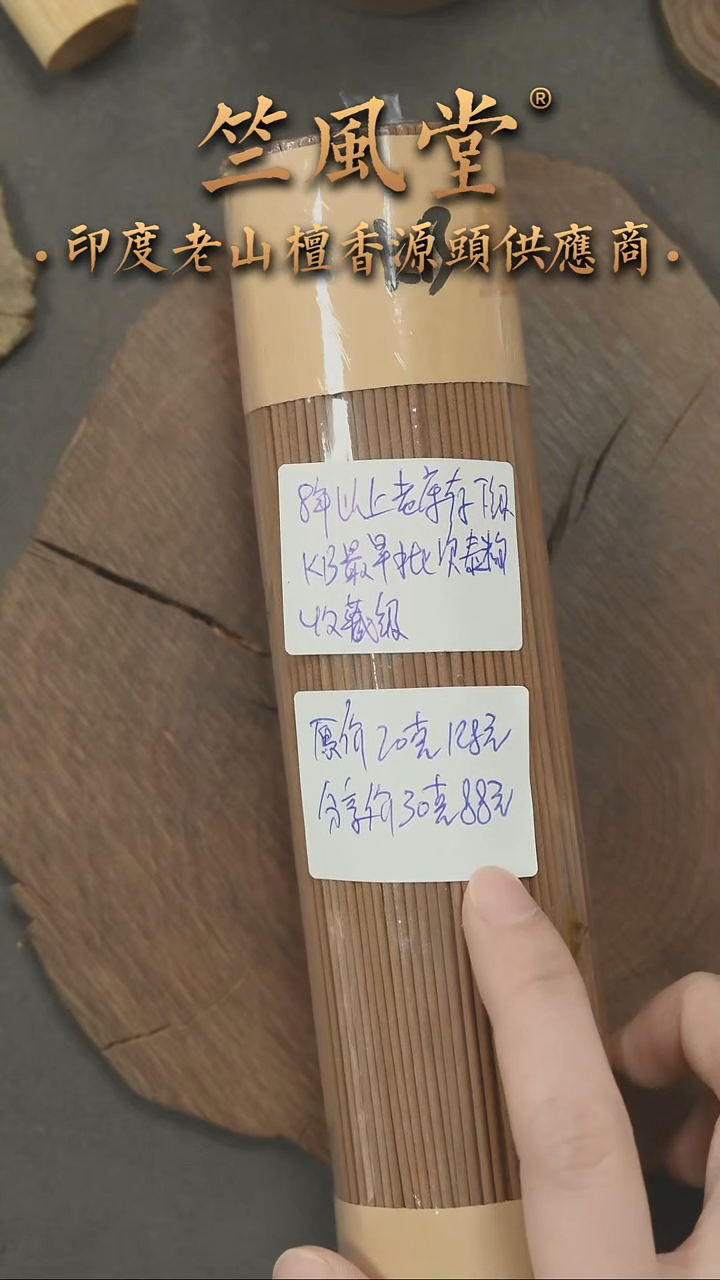 竺風堂®
·印度老山檀香源頭供應商·
8年以上老库存下级
KB最早批次素粉
收藏级
原价20克128元
分享价30克88元